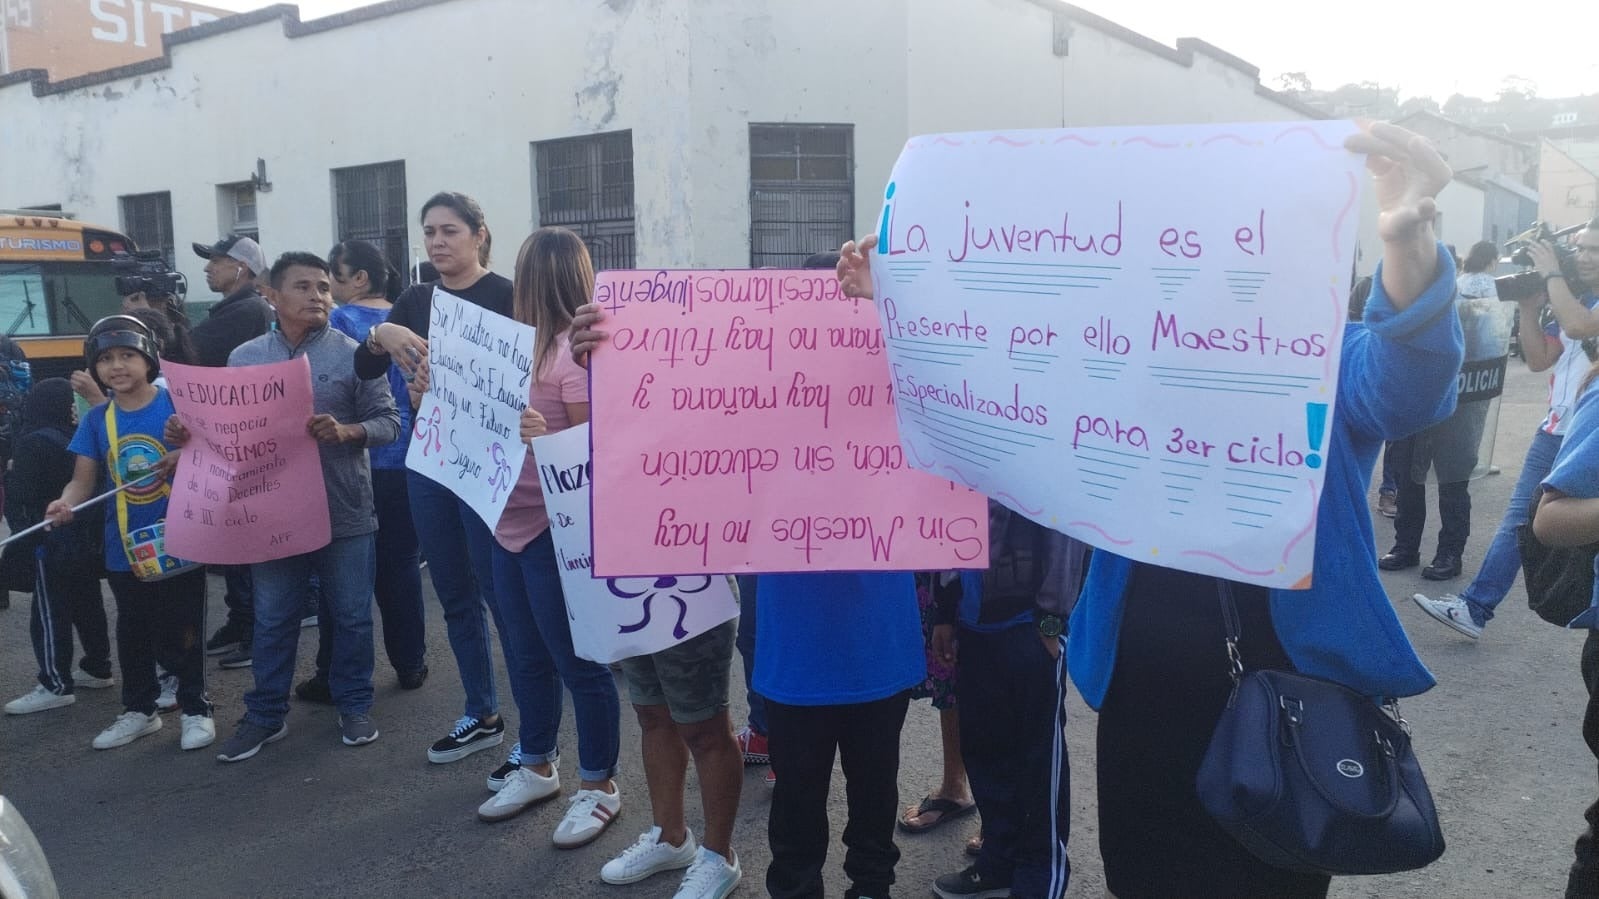 SIT
TURISMO
La EDUCACIÓN
no se negocia
EXIGIMOS
El nombramiento
de los Docentes
de III ciclo
AFF
Sin Maestros no hay
Educación, Sin Educación
No hay un Futuro
Seguro
De
Sin Maestros no hay
ción, sin educación
no hay mañana y
ñana no hay futuro
necesitamos! ¡urgente
¡La juventud es el
Presente por ello Maestros
Especializados para 3er ciclo!
OLICIA